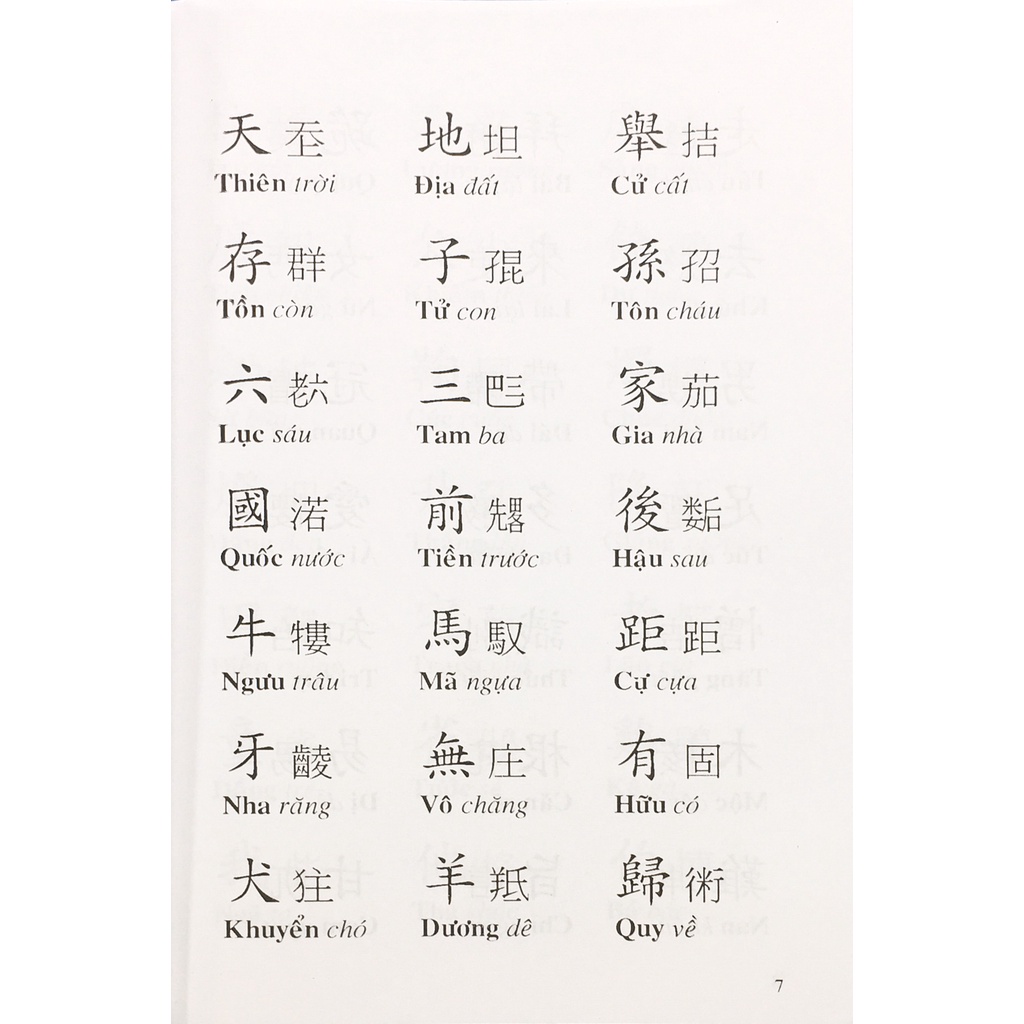 天 𡗶 地 坦 舉 拮
Thiên trời Địa đất Cử cất
存 群 子 𡥵 孫 𡥙
Tồn còn Tử con Tôn cháu
六 𦒹 三 𠀧 家 茄
Lục sáu Tam ba Gia nhà
國 渃 前 𠓀 後 𢖖
Quốc nước Tiền trước Hậu sau
牛 𤛠 馬 馭 距 距
Ngưu trâu Mã ngựa Cự cựa
牙 𪘵 無 庄 有 固
Nha răng Vô chăng Hữu có
犬 㹥 羊 羝 歸 術
Khuyển chó Dương dê Quy về
7